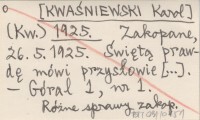 [KWAŚNIEWSKI Karol]
(Kw.) 1925. Zakopane,
26.5.1925. Świętą praw-
dę mówi przysłowie [...].
— Góral 1, nr 1.
Różne sprawy zakop.